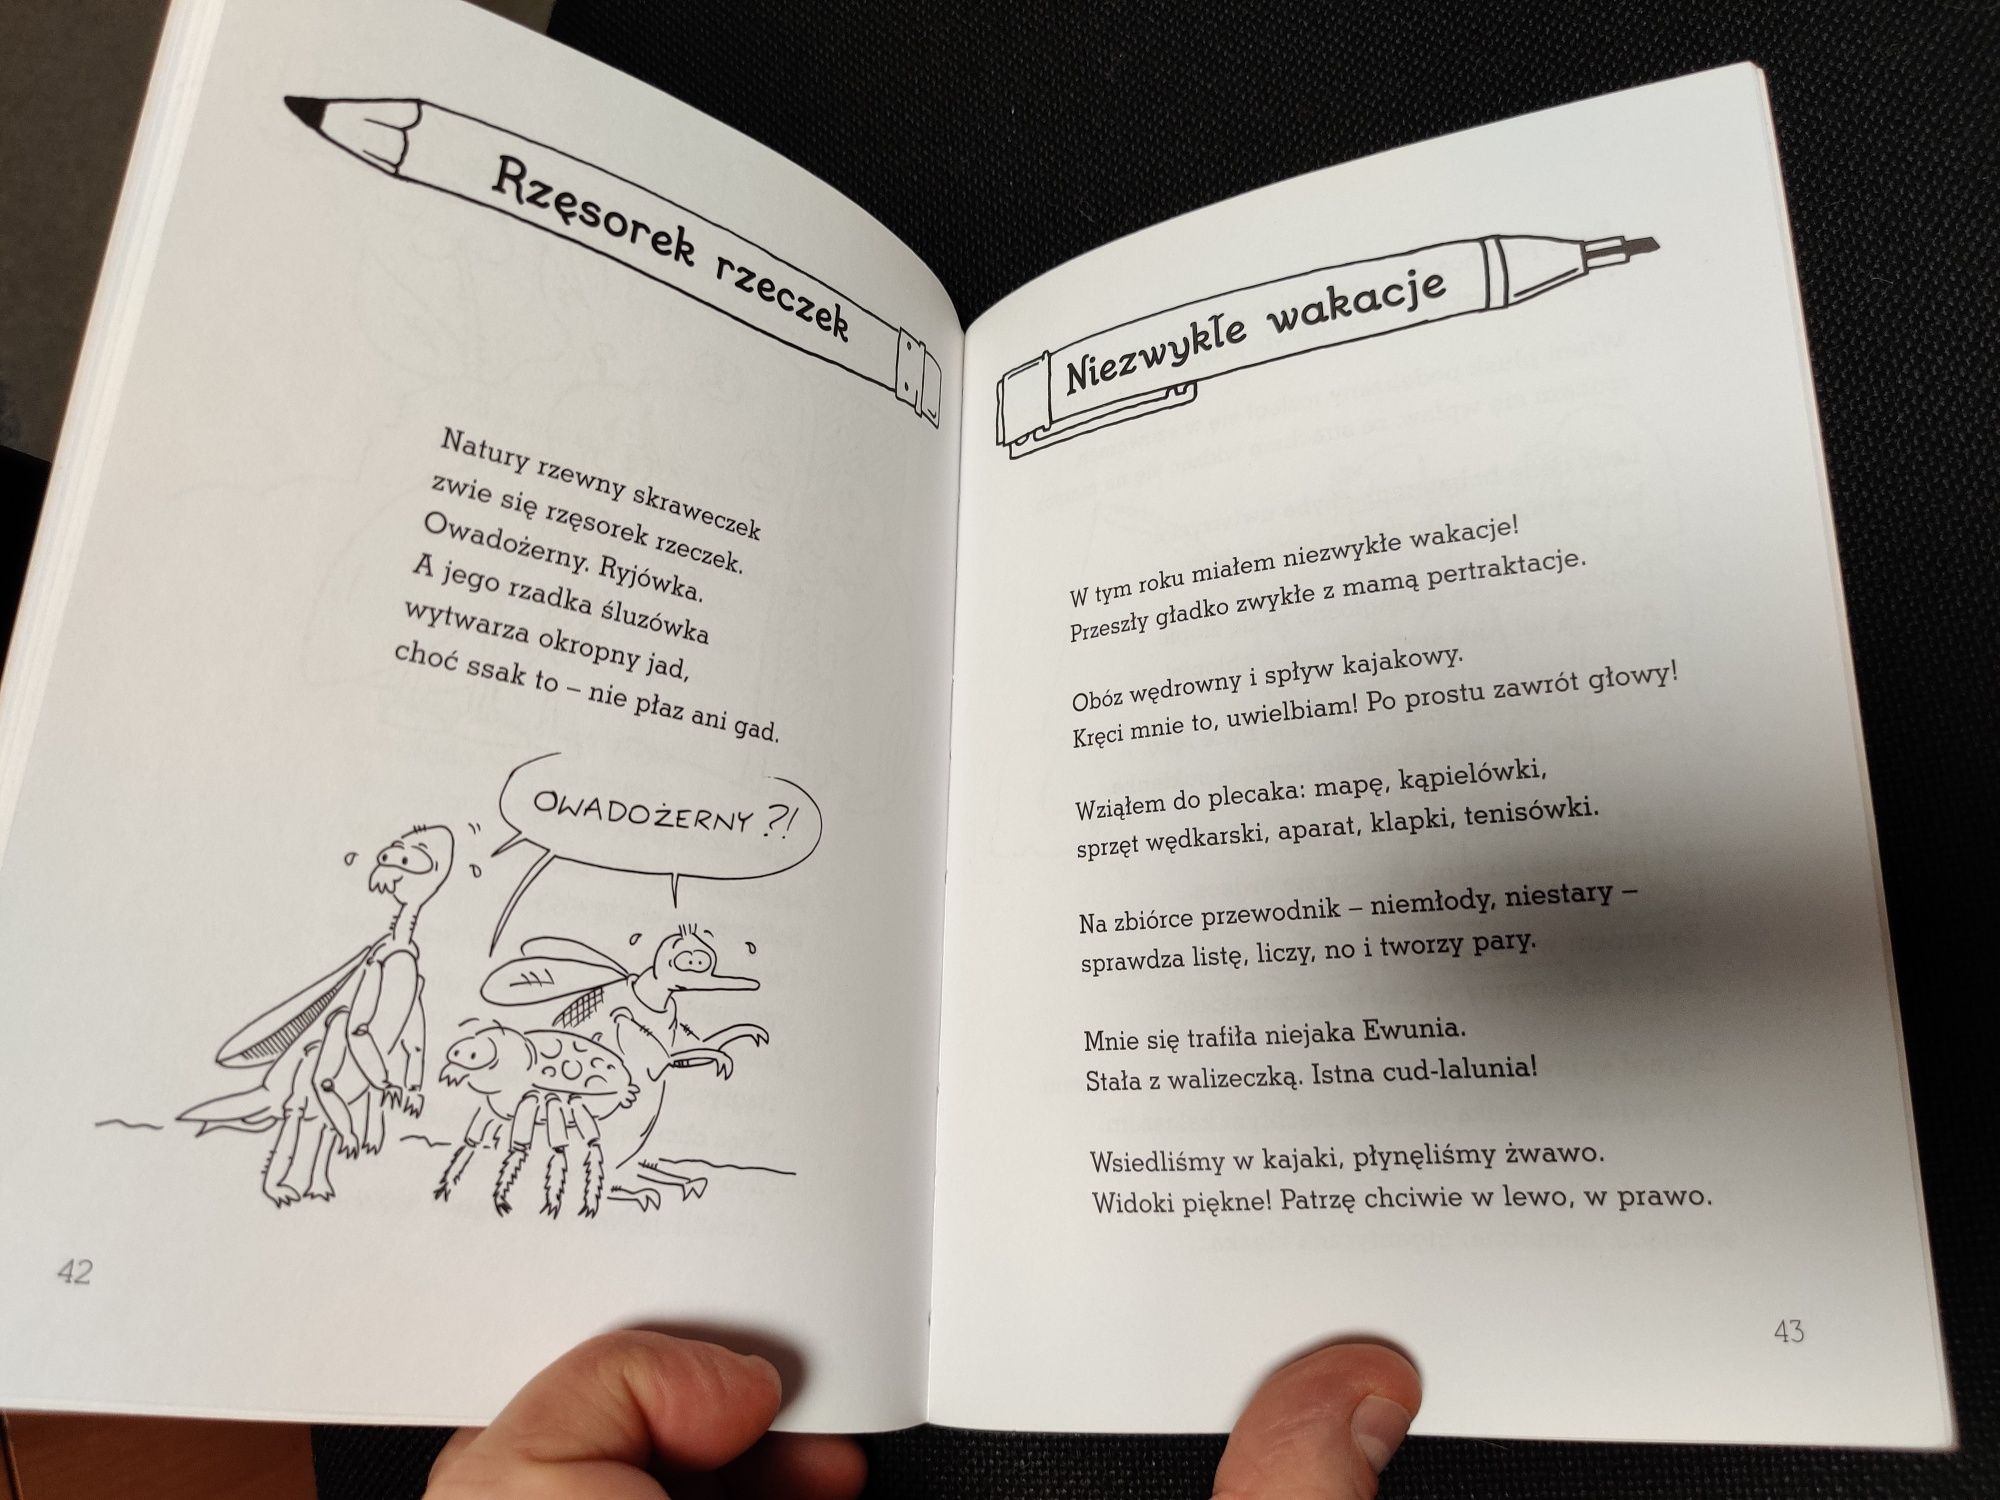 Rzęsorek rzeczek
Natury rzewny skraweczek
zwie się rzęsorek rzeczek.
Owadożerny. Ryjówka.
A jego rzadka śluzówka
wytwarza okropny jad,
choć ssak to – nie płaz ani gad.
OWADOŻERNY ?!
42
Niezwykłe wakacje
W tym roku miałem niezwykłe wakacje!
Przeszły gładko zwykłe z mamą pertraktacje.
Obóz wędrowny i spływ kajakowy.
Kręci mnie to, uwielbiam! Po prostu zawrót głowy!
Wziąłem do plecaka: mapę, kąpielówki,
sprzęt wędkarski, aparat, klapki, tenisówki.
Na zbiórce przewodnik – niemłody, niestary –
sprawdza listę, liczy, no i tworzy pary.
Mnie się trafiła niejaka Ewunia.
Stała z walizeczką. Istna cud-lalunia!
Wsiedliśmy w kajaki, płynęliśmy żwawo.
Widoki piękne! Patrzę chciwie w lewo, w prawo.
43